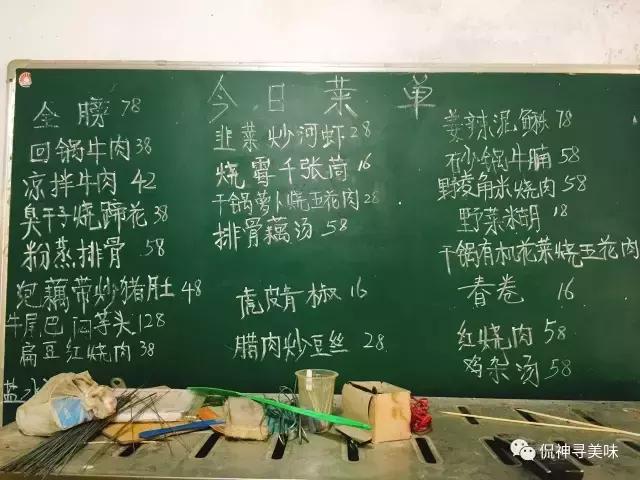 今日菜单
全膀 78
回锅牛肉 38
凉拌牛肉 42
臭干子烧蹄花 38
粉蒸排骨 58
泡藕带炒猪肚 48
牛尾巴焖芋头 128
扁豆红烧肉 38
盐水
韭菜炒河虾 28
烧霉千张筒 16
干锅萝卜烧五花肉 28
排骨藕汤 58
虎皮青椒 16
腊肉炒豆丝 28
姜辣泥鳅 78
砂锅牛腩 58
野菱角米烧肉 58
野菜米胡 18
干锅有机花菜烧五花肉
春卷 16
红烧肉 58
鸡杂汤 58
侃神寻美味